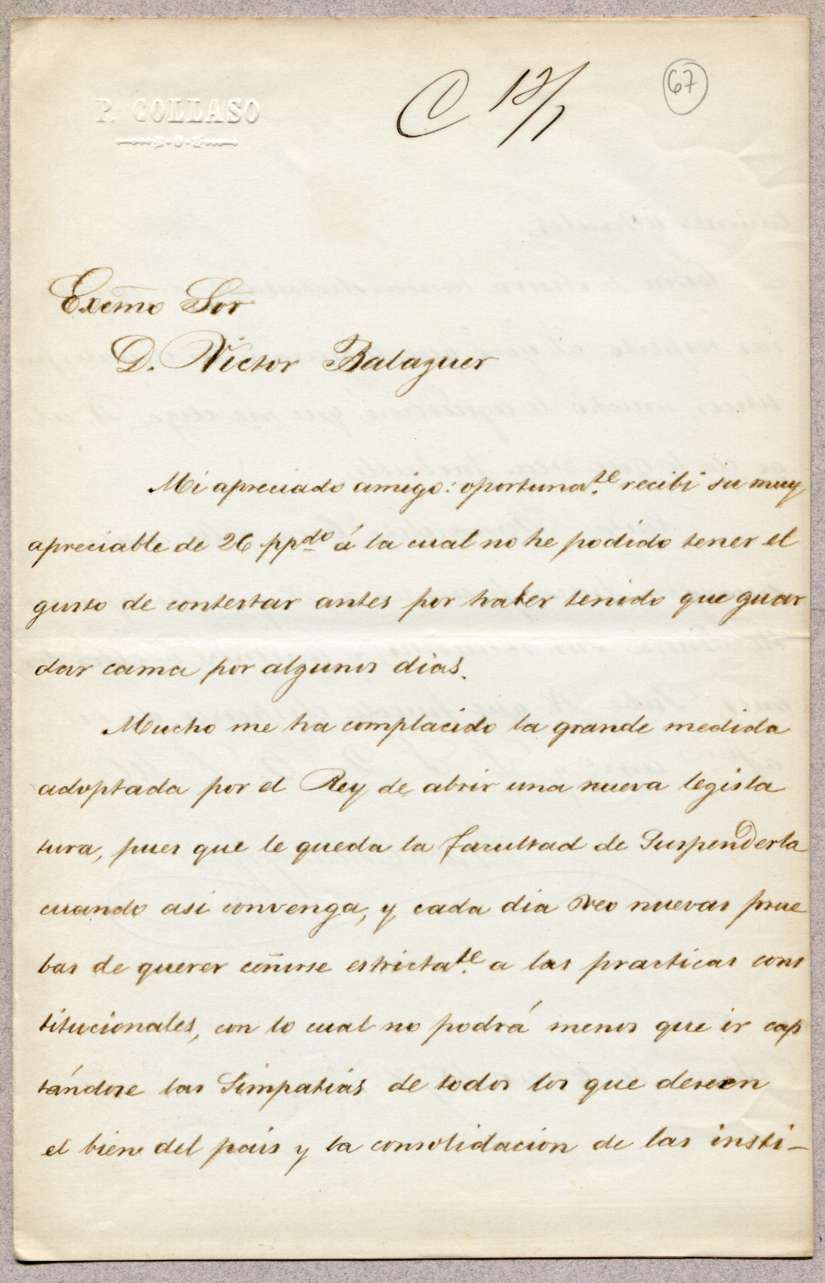 P. COLLASO
C 12/7
67
Excmo Sor
D. Victor Balaguer
Mi apreciado amigo: oportunate. recibí su muy
apreciable de 26 ppdo á la cual no he podido tener el
gusto de contestar antes por haber tenido que guar
dar cama por algunos dias.
Mucho me ha complacido la grande medida
adoptada por el Rey de abrir una nueva legisla
tura, pues que le queda la facultad de Suspenderla
cuando asi convenga, y cada dia veo nuevas prue
bas de querer ceñirse estrictate. a las practicas cons
titucionales, con lo cual no podrá menos que ir cap
tándose las Simpatías de todos los que deseen
el bien del país y la consolidacion de las insti-